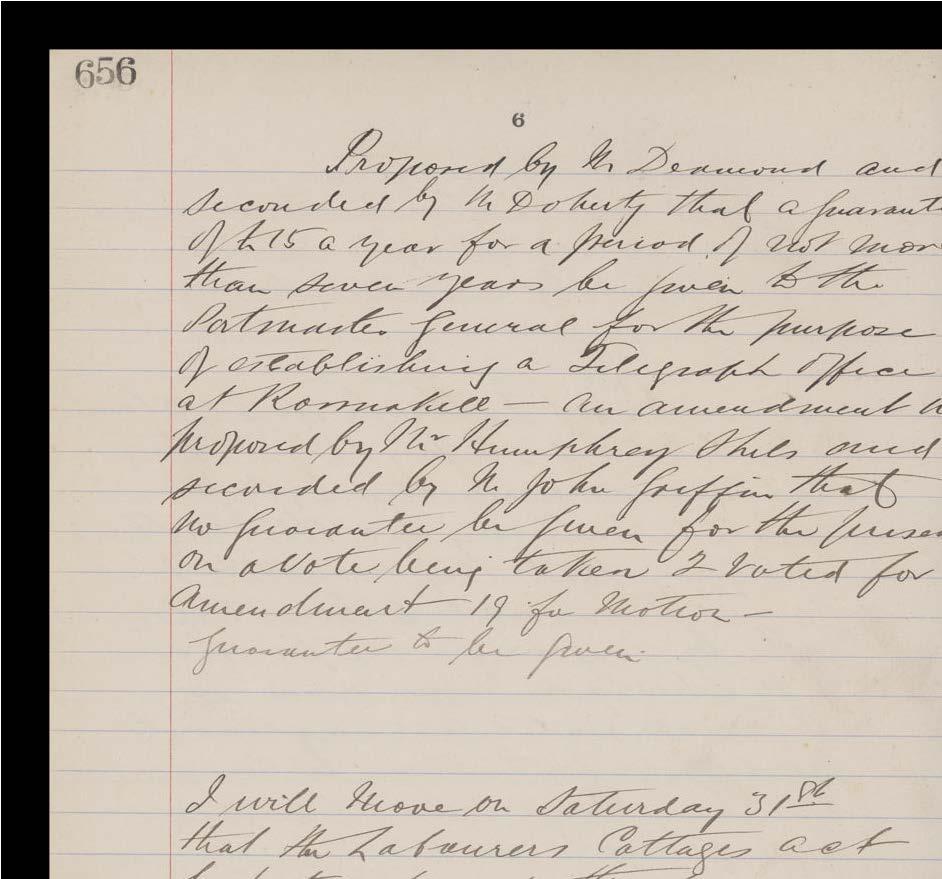 656
6
Proposed by Mr Deamond and
seconded by Mr Doherty that a guarant
of £15 a year for a period of not more
than seven years be given to the
Postmaster General for the purpose
of establishing a Telegraph Office
at Rosnakill — An amendment
proposed by Mr Humphrey Shils and
seconded by Mr John Griffin that
no guarantee be given for the presen
on a vote being taken 2 voted for
Amendment 19 for Motion —
Guarantee to be given
I will Move on Saturday 31st
that the Labourers Cottages act